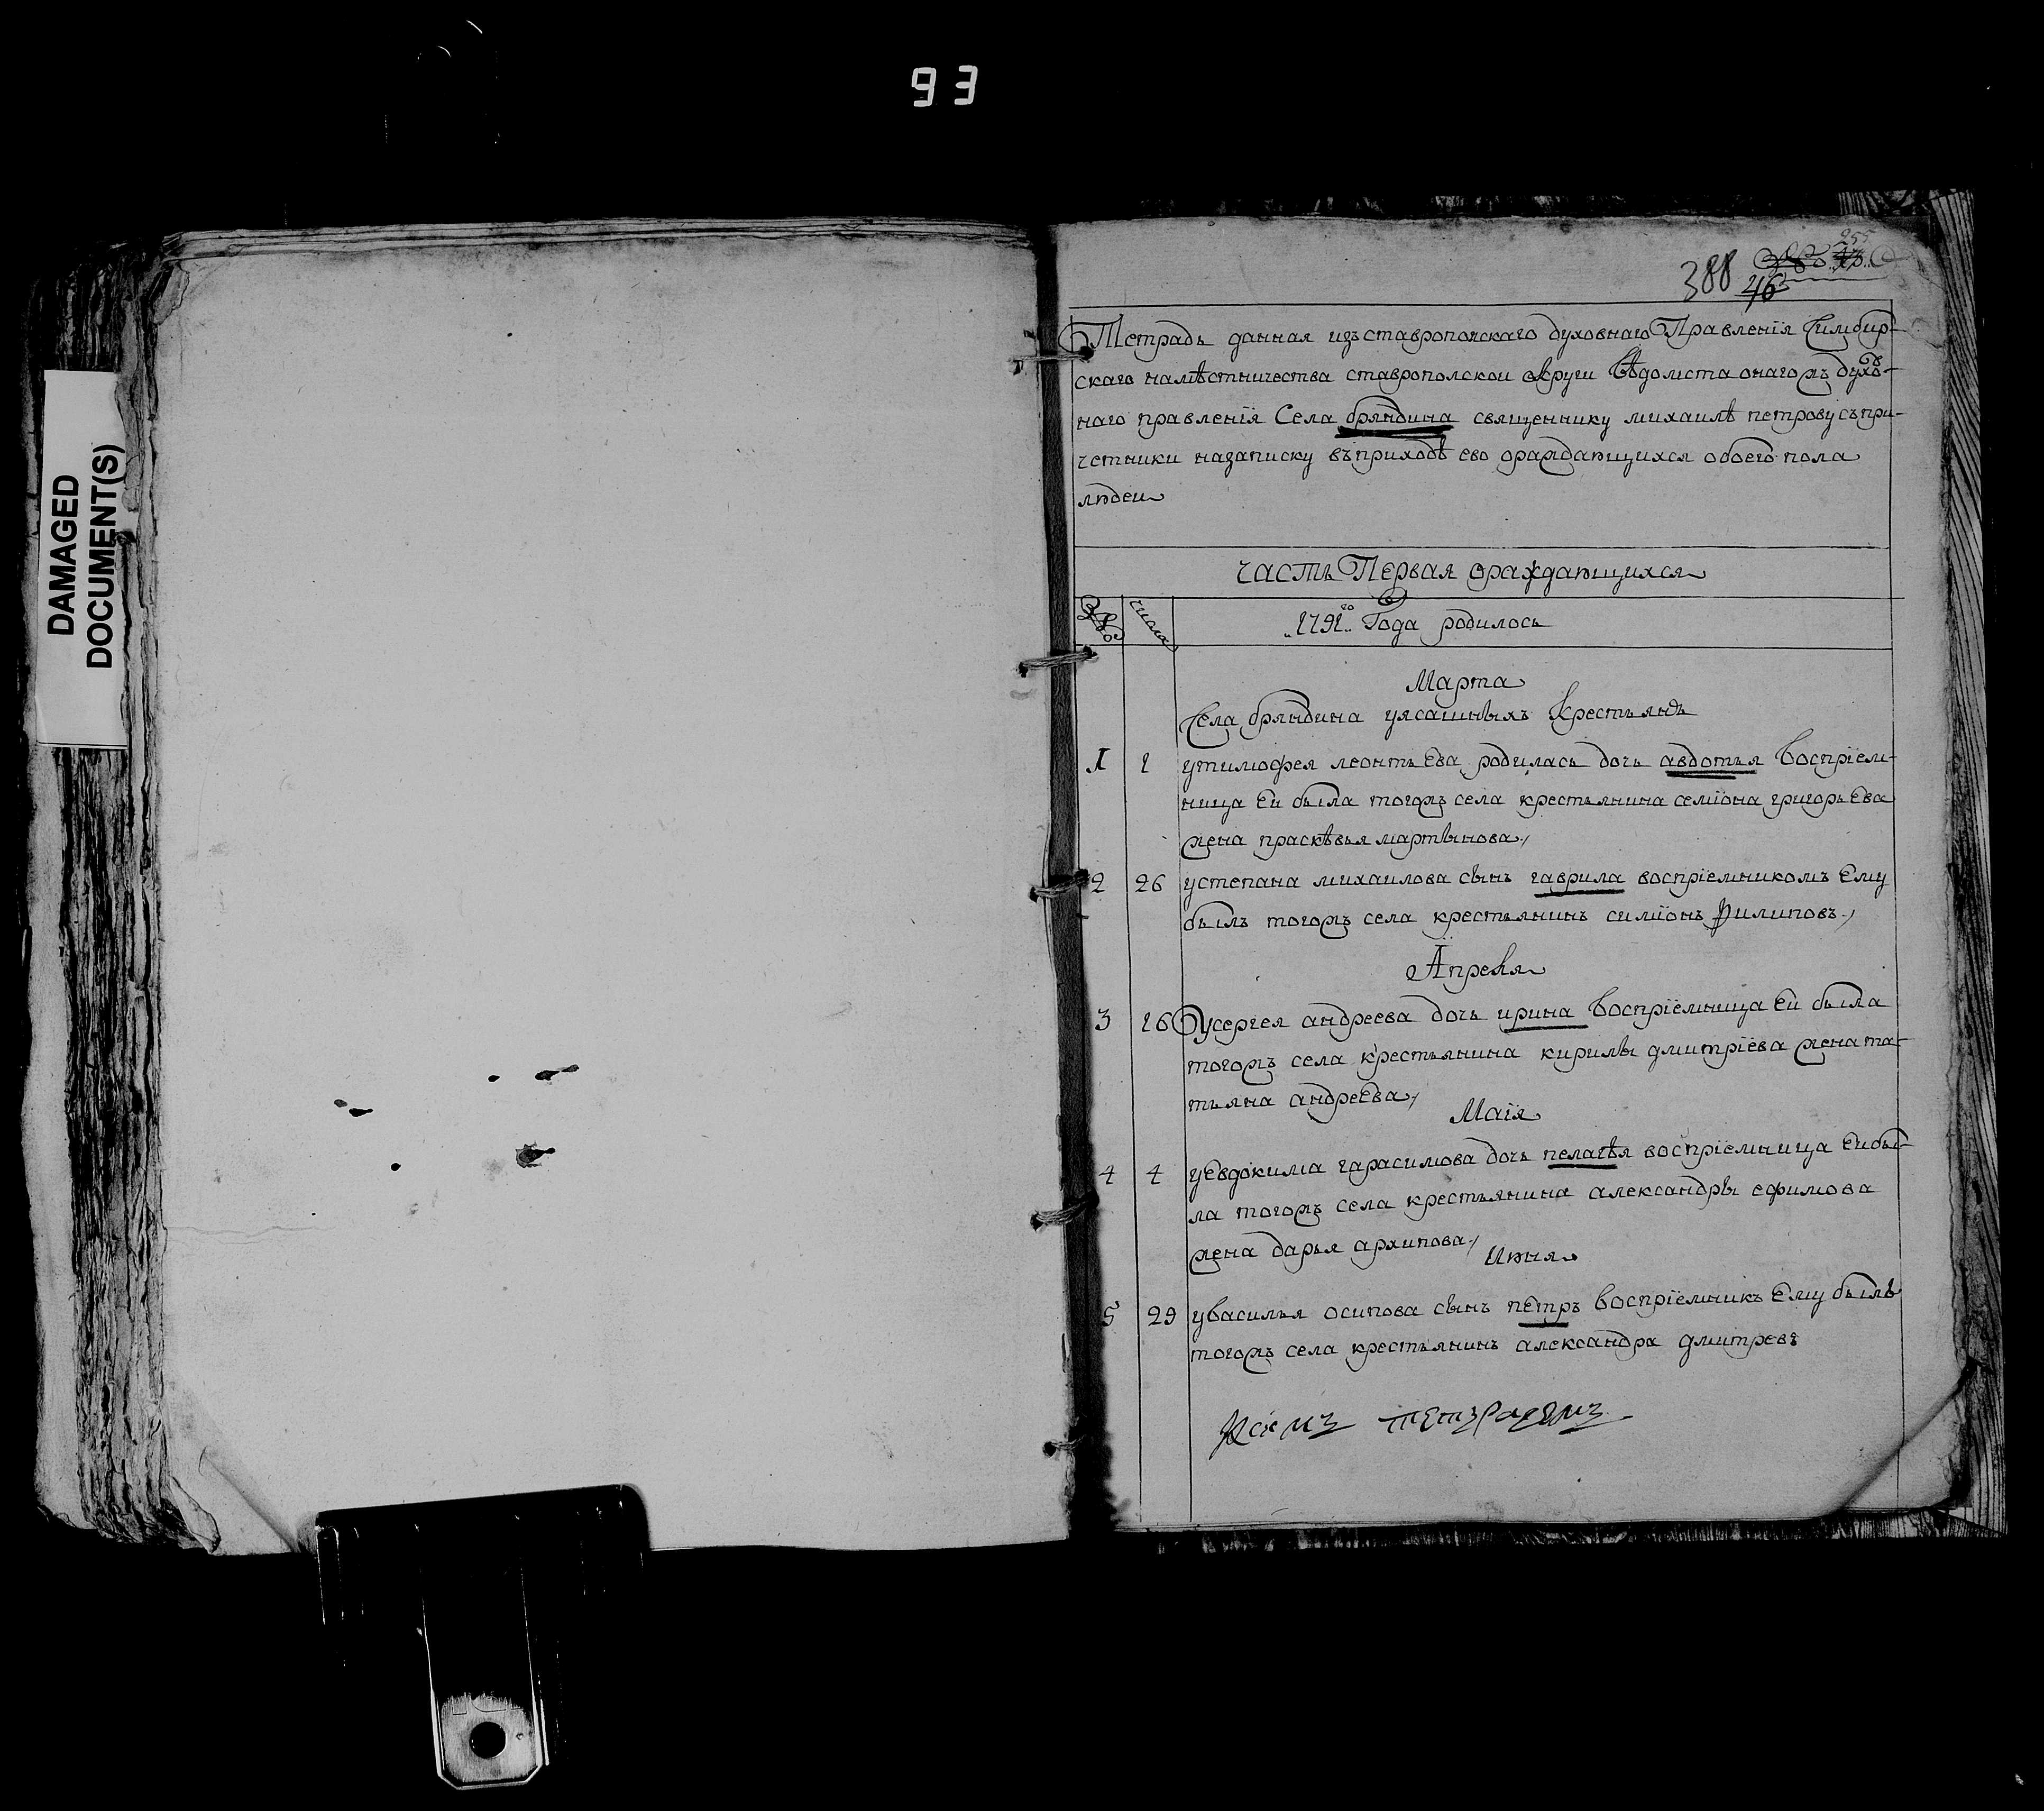 93
DAMAGED
DOCUMENT(S)
255
388
46
Тетрадь данная изъставропольскаго духовнаго Правленїя Симбир-
скаго намѣстничества ставрополской округи вѣдомста онагожъ духов-
наго правленїя Села бряндина священнику михаилѣ петрову съпри-
четники назаписку въприходѣ ево ораждающихся обоего пола
людеи
часть Первая ораждающихся
числа
1791го Года родилось
Марта
Села бряндина уясашныхъ крестьянъ
1 1 утимофея леонтьева родилась дочь авдотья восприем-
ница еи была тогожъ села крестьянина семїона григорьева
жена прасκѣвья мартынова
2 26 устепана михаилова сынъ гаврила воспрїемникомъ ему
былъ тогожъ села крестьянинъ симїонъ филиповъ
Апреля
3 16 Усергея андреева дочь ирина воспрїемница еи была
тогожъ села крестьянина кирилы дмитрїева жена та-
тьяна андреева
Маїя
4 4 уевдокима гарасимова дочь пелагѣя воспрїемница еибы-
ла тогожъ села крестьянина александры ефимова
жена дарья архипова
Июня
5 29 увасилья осипова сынъ петръ воспрїемникъ ему былъ
тогожъ села крестьянинъ александра дмитревъ